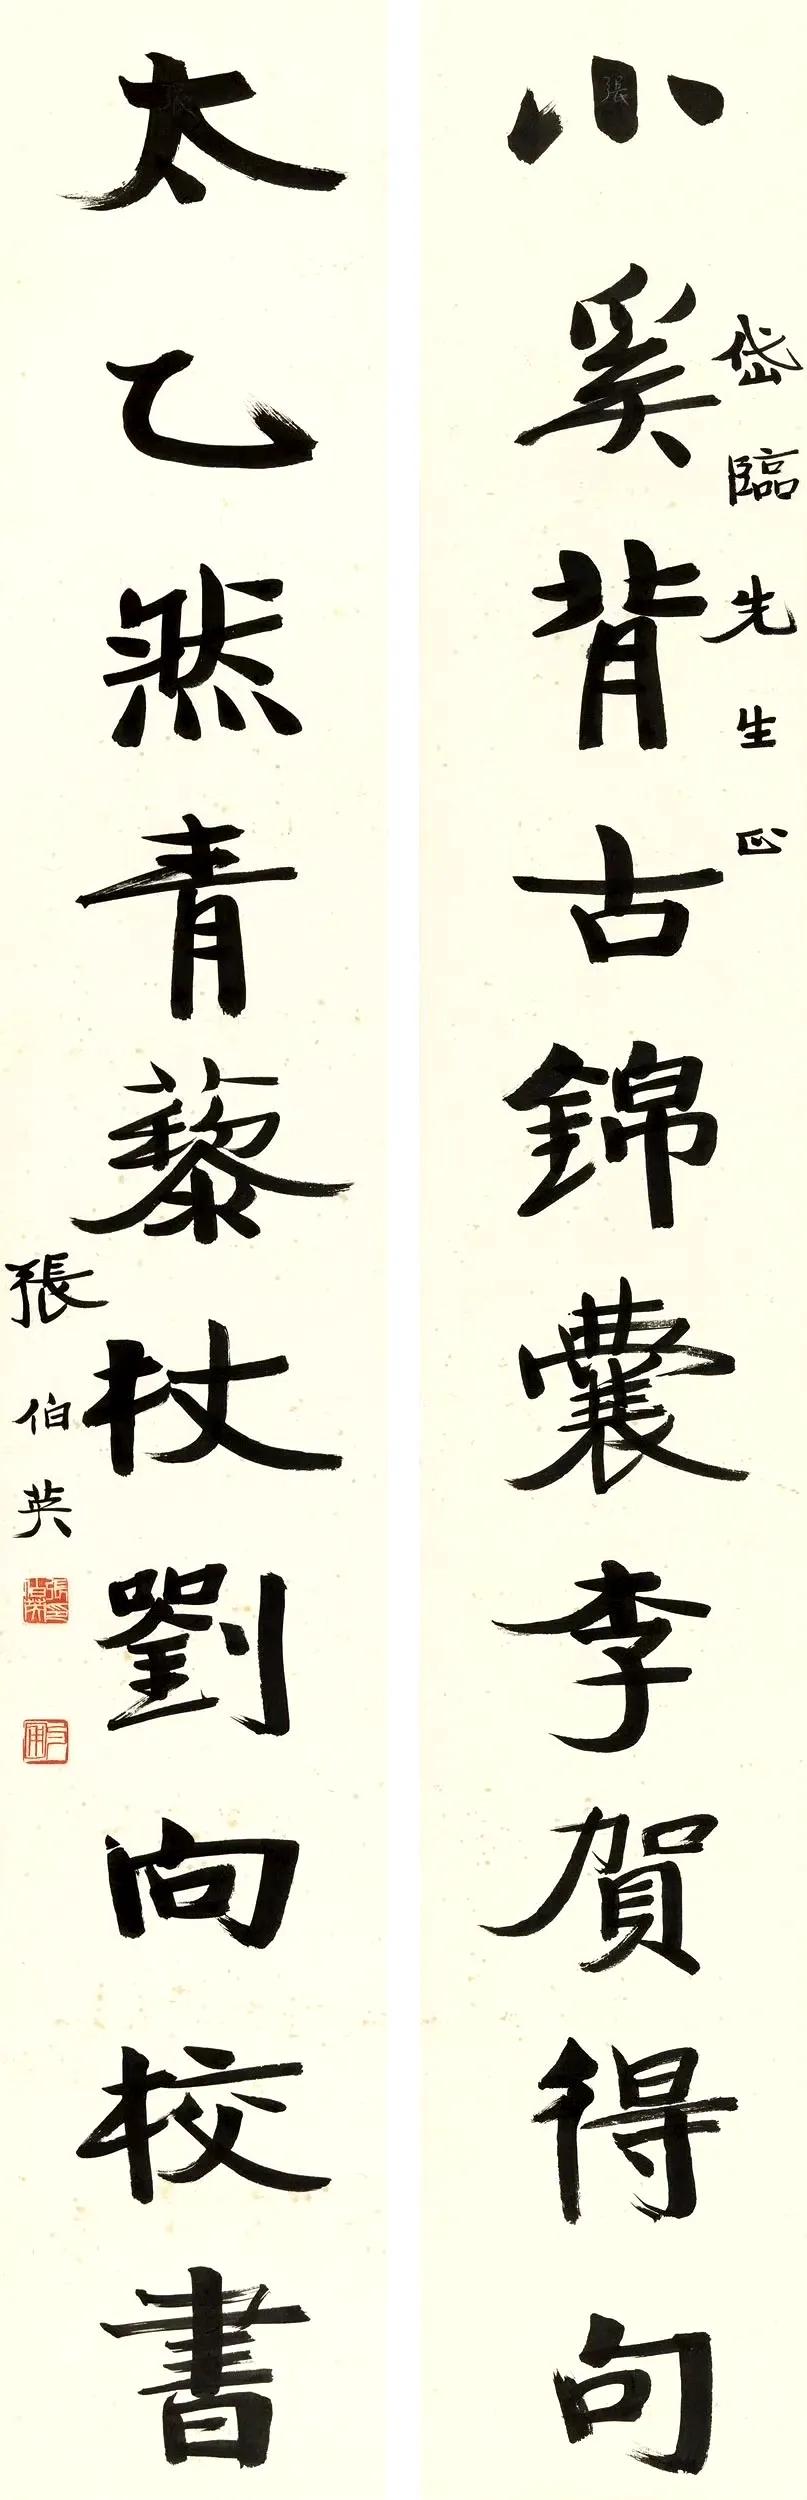 岱臨先生正
小奚背古錦囊李賀得句
太乙然青藜杖劉向校書
張伯英
張印伯英
張
張